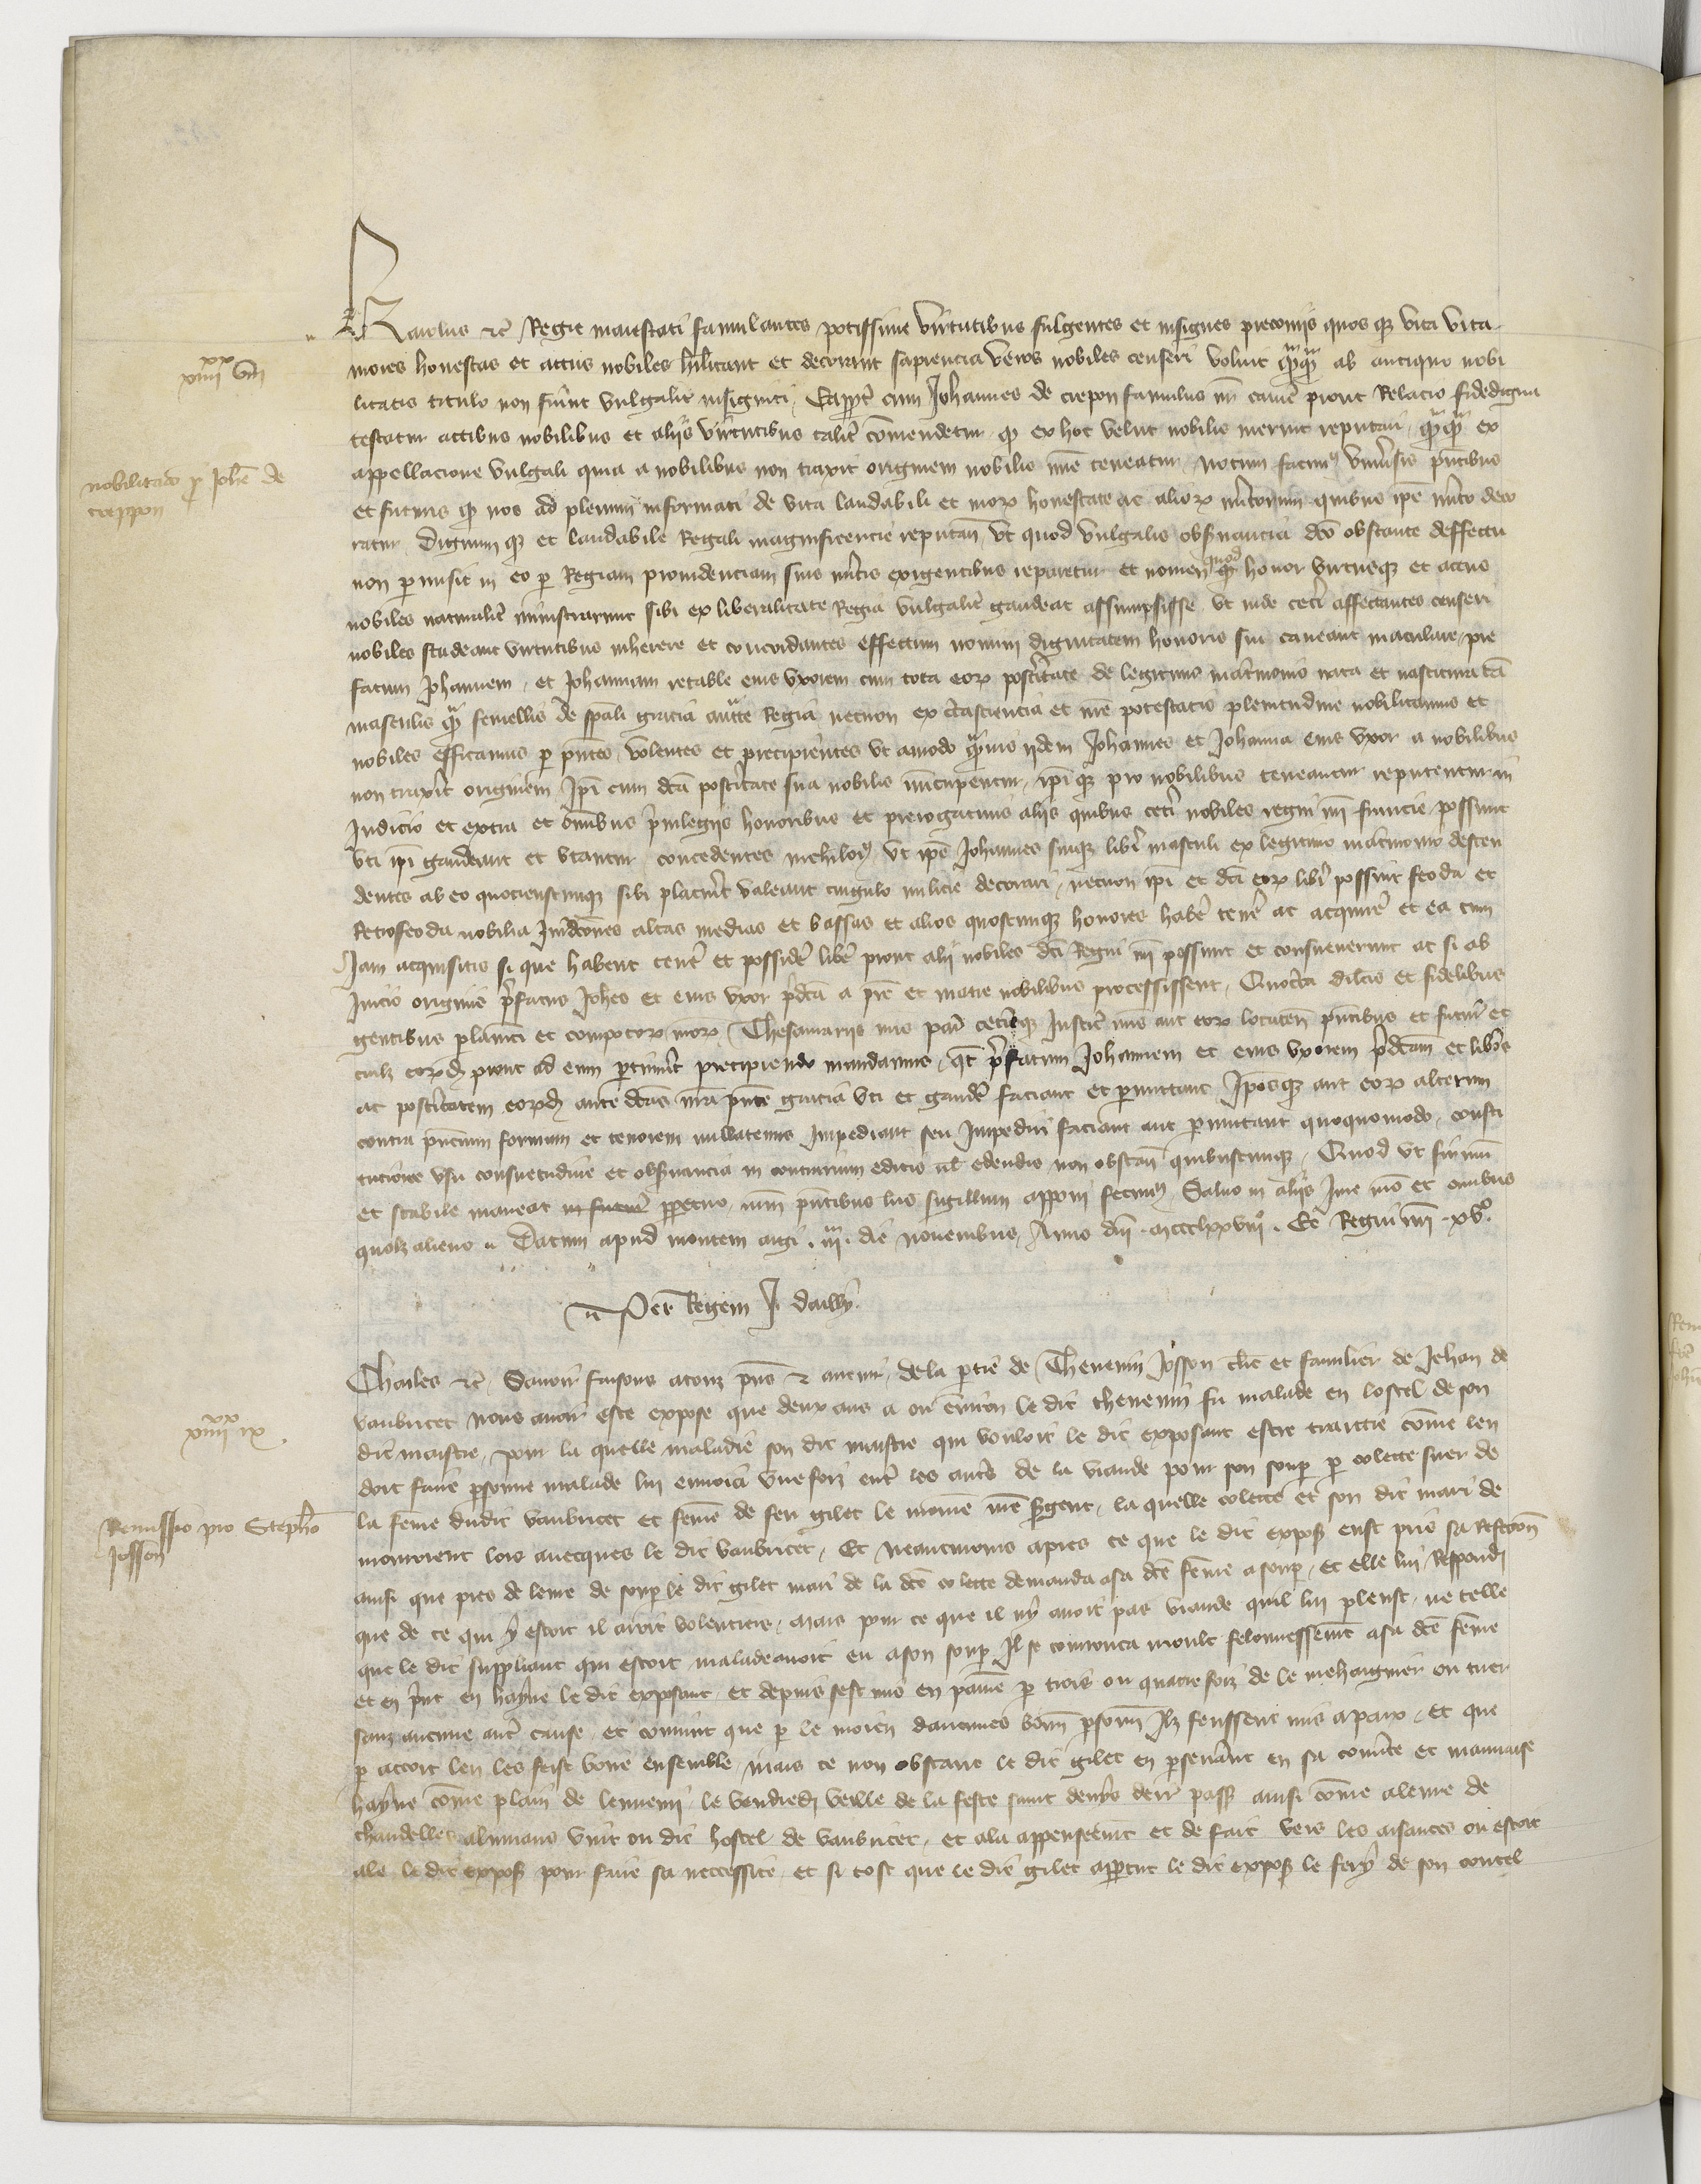 Karolus etc̃ Regie maiestati famulantes potissime virtutibus fulgentes et insignes preconiis quos qz vita
xiiii xx viii
mores honestas et actus nobiles hilitant et decorant sapiencia veros nobiles censeri voluit qm̃qm̃ ab antiquo nobi
litatis titulo non fuit̃nt vulgalit̃ insigniti, cum Johannes de crepon famulus nr̃ prout Relacio fidedigna
testatur actibus nobilibus et aliis virtutibus talit̃ com̃endetur qz ex hoc velut nobilis meruit reputari, qm̃qm̃ ex
nobilitacio p Joh̃e de
creppon
appellacione vulgali quia a nobilibus non traxit originem nobilis mĩe teneatur, notum facimꝰ uniṽsis pñtibus
et futuris qz nos ad plenum informati de vita laudabili et morꝝ honestate ac aliorꝝ m̃itorum quibus ip̃e m̃ito deco
ratur Dignum qz et laudabile Regali magnificencie reputañ, ut quod vulgalis obs̃uancia dc̃o obstante deffectu
non permisit in eo per Regiam providenciam suis m̃itis exigentibus reparetur et nomen quod honor virtusqz et actus
nobiles naturalit̃ ministrarunt sibi ex liberalitate Regia vulgalit̃ gaudeat assumpsisse ut inde cet̃i affectantes censeri
nobiles studeant virtutibus inherere et concordantes effectum nomini dignitatem honoris sui caveant maculare, pre
fatum Johannem, et Johannam retable eius uxorem cum tota eorꝝ post̃itate de legitimo mat̃imonio nata et nascitura tã
masculis qm̃ femellis de sp̃ali gracia auct̃te Regia necnon ex c̃ta sciencia et nr̃e potestatis plenitudine nobilitamus et
nobiles efficimus p pñtes, volentes et precipientes ut amodo qm̃uis iidem Johannes et Johanna eius uxor a nobilibus
non trax̃it originem, Ip̃i cum dc̃a post̃itate sua nobiles nũcupentur, ip̃iqz pro nobilibus teneantur reputentur in
Judicio et extra et om̃ibus p̃uilegiis honoribus et prerogativis aliis quibus cet̃i nobiles regni nr̃i francie possunt
uti ip̃i gaudeant et utantur, concedentes nichilomꝰ ut ip̃e Johannes suiqz lib̃i masculi ex legitimo mat̃imonio descen
dentes ab eo quocienscumqz sibi placũit valeant cingulo milicie decorari, necnon ip̃i et dc̃i eorꝝ lib̃i possint feoda et
Retrofeoda nobilia Juridc̃ones altas medias et bassas et alios quoscumqz honores hab̃e teñe ac acquir̃e et ea cum
Jam acquisitis si que habent teñe et possid̃e lib̃e prout alii nobiles dc̃i Regni nr̃i possunt et consueverunt ac si ab
Inicio originis p̃fatus Joh̃es et eius uxor p̃dc̃a a pr̃e et matre nobilibus processissent, Quoc̃ca dilc̃is et fidelibus
gentibus p̃lamẽti et compotorꝝ nr̃orꝝ Thesaurariis nr̃is par̃ cet̃isqz Justic̃ nr̃is aut eorꝝ locuteñ pñtibus et fut̃is et
cuilz eorꝝd prout ad eum p̃tinũit precipiendo mandamus, qt̃ p̃fatum Johannem et eius uxorem p̃dc̃am et lib̃os
ac post̃itatem eorꝝd ante dc̃as nr̃a pñte gracia uti et gaud̃e faciant et p̃mittant Ip̃osqz aut eorꝝ alterum
contra pñcium formam et tenorem nullatenus Impediant seu Impediri faciant aut p̃mittant quoquomodo, consti
tucione usu consuetudine et obs̃uancia in contrarium editis ul̃ edendis non obstañ quibuscumqz, Quod ut firmũ
et stabile maneat in futur̃ p̃petuo, nr̃um pñtibus lr̃is sigillum apponi fecimꝰ, Salvo in aliis Jure nr̃o et om̃ibus
quolz alieno. Datum apud montem argi. iii. die novembris, Anno dñi. mccclxxviii°. Et Regni nr̃i. xv°.
Per Regem J. dailly.
Charles etc̃, Savoir faisons a touz pñs & avenir, de la p̃tie de Thevenin Josson cl̃ic et familier de Jehan de
vaubricet nous avoir este expose que deux ans a ou em̃iron le dit thevenin fu malade en lostel de son
xiiii xx ix
dit maistre, pour la quelle maladie son dit maistre qui vouloit le dit exposant estre traittie com̃e len
doit faire p̃sonne malade lui envoia une foiz ent̃e les aut̃es de la viande pour son soup̃ p colette suer de
la fem̃e dudit vaubricet et fem̃e de feu gilet le moine nr̃e s̃gent, la quelle colette et son dit mari de
Remissio pro Steph̃o
Josson
mouroient lors avecques le dit vaubricet, Et neantmoins apres ce que le dit exposꝰ eust pris sa Reffeccõn
ainsi que pres de leure de soup̃ le dit gilet mari de la dc̃e colette demanda a sa dc̃e fem̃e a soup̃, et elle lui Respondi
que de ce qui y estoit il aroit volentiers, mais pour ce que il ny avoit pas viande quil lui pleust, ne telle
que le dit suppliant qui estoit malade avoit eu a son soup̃ Il se courrouca moult felonnessem̃t a sa dc̃e fem̃e
et en print en hayne le dit exposant, et depuis sest mis en paine p trois ou quatre foiz de le mehaignier ou tuer
sanz aucune aut̃e cause, et convint que p le moien daucunes bonñ p̃sonñ Ilz feussent mis a paix, Et que
p accort len les feist boire ensemble, mais ce non obstant le dit gilet en p̃seṽant en sa et mauvaise
hayne com̃e plain de lennemi, le vendredi veille de la feste saint denys derr̃ passe ainsi com̃e a leure de
chandelles alumans vint ou dit hostel de vaubricet, et ala appenseem̃t et de fait vers les aisances ou estoit
ale le dit exposꝰ pour faire sa neccessite, et si tost que le dit gilet ap̃cut le dit exposꝰ le fery de son coutel